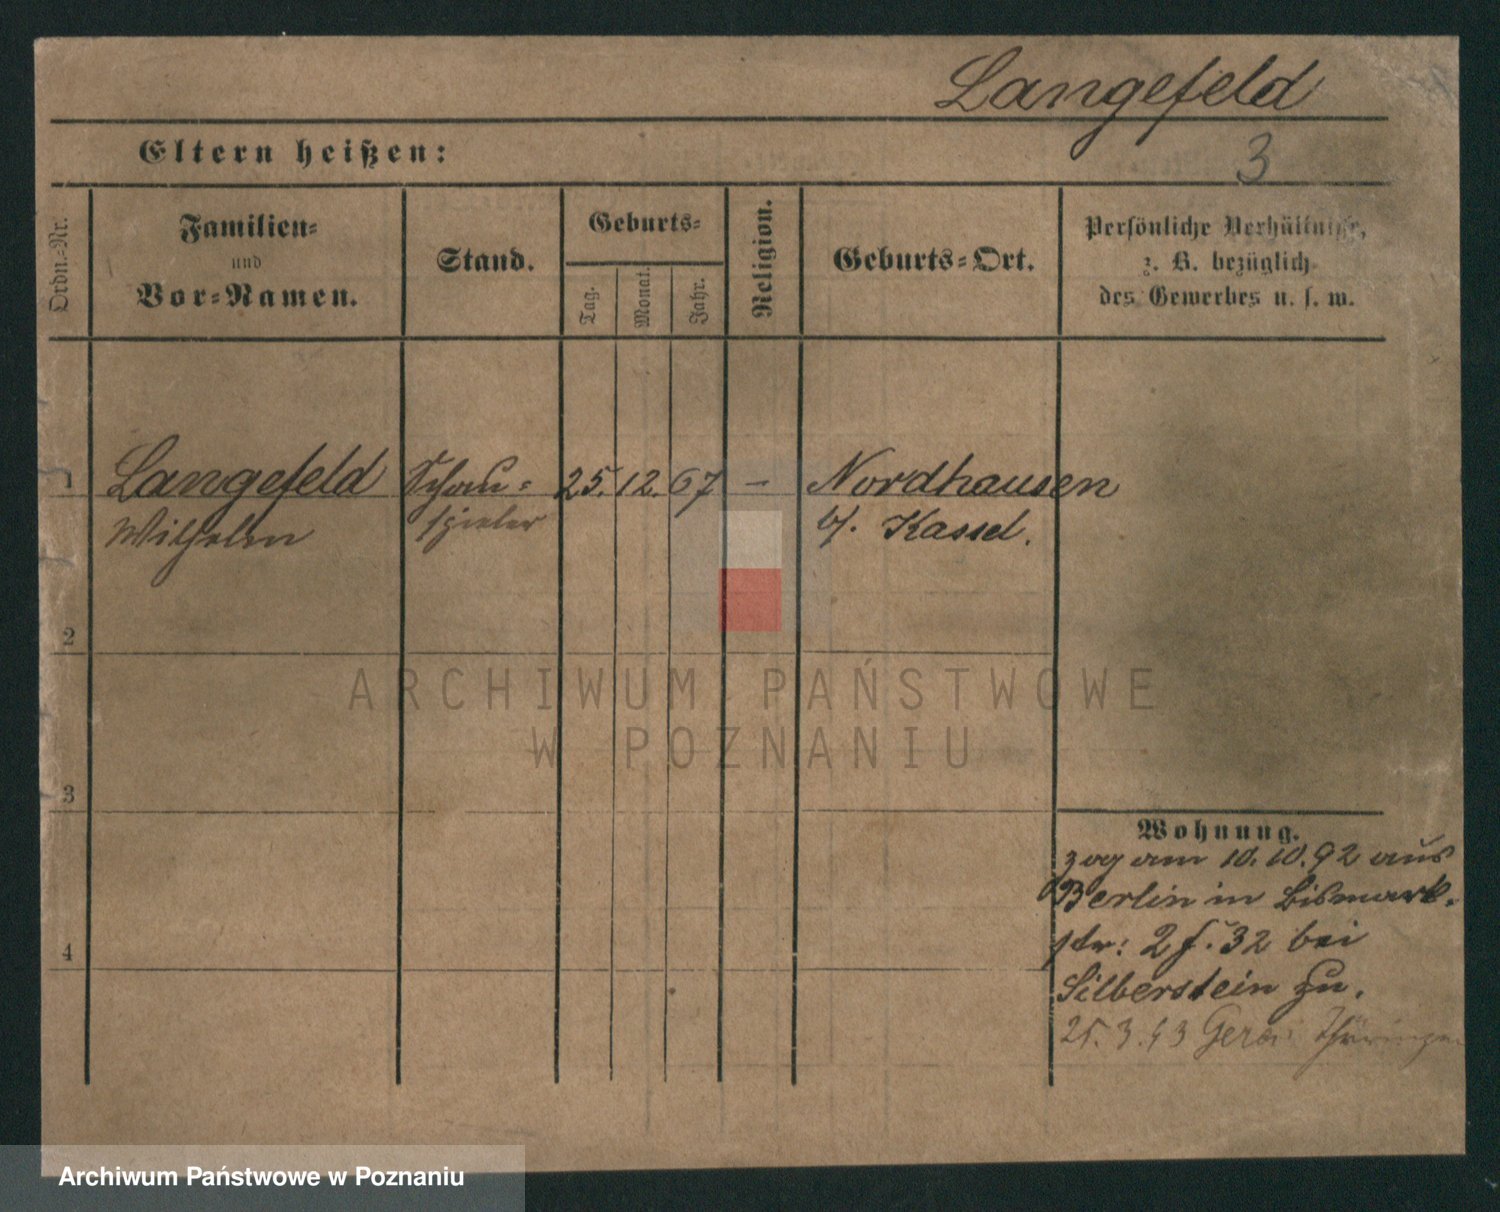 Langefeld
3
Eltern heißen:
Ordn.=Nr.
Familien=
und
Vor=Namen.
Stand.
Geburts=
Tag.
Monat.
Jahr.
Religion.
Geburts=Ort.
Persönliche Verhältnisse,
z. B. bezüglich
des Gewerbes u. s. w.
1
Langefeld
Wilhelm
Schau=
spieler
25. 12. 67
—
Nordhausen
b/. Kassel.
2
3
4
Wohnung.
zog am 10. 10. 92 aus
Berlin in Bismark-
str: 2 f. 32 bei
Silberstein zu.
25. 3. 93 Gera Thüringen
ARCHIWUM PAŃSTWOWE
W POZNANIU
Archiwum Państwowe w Poznaniu